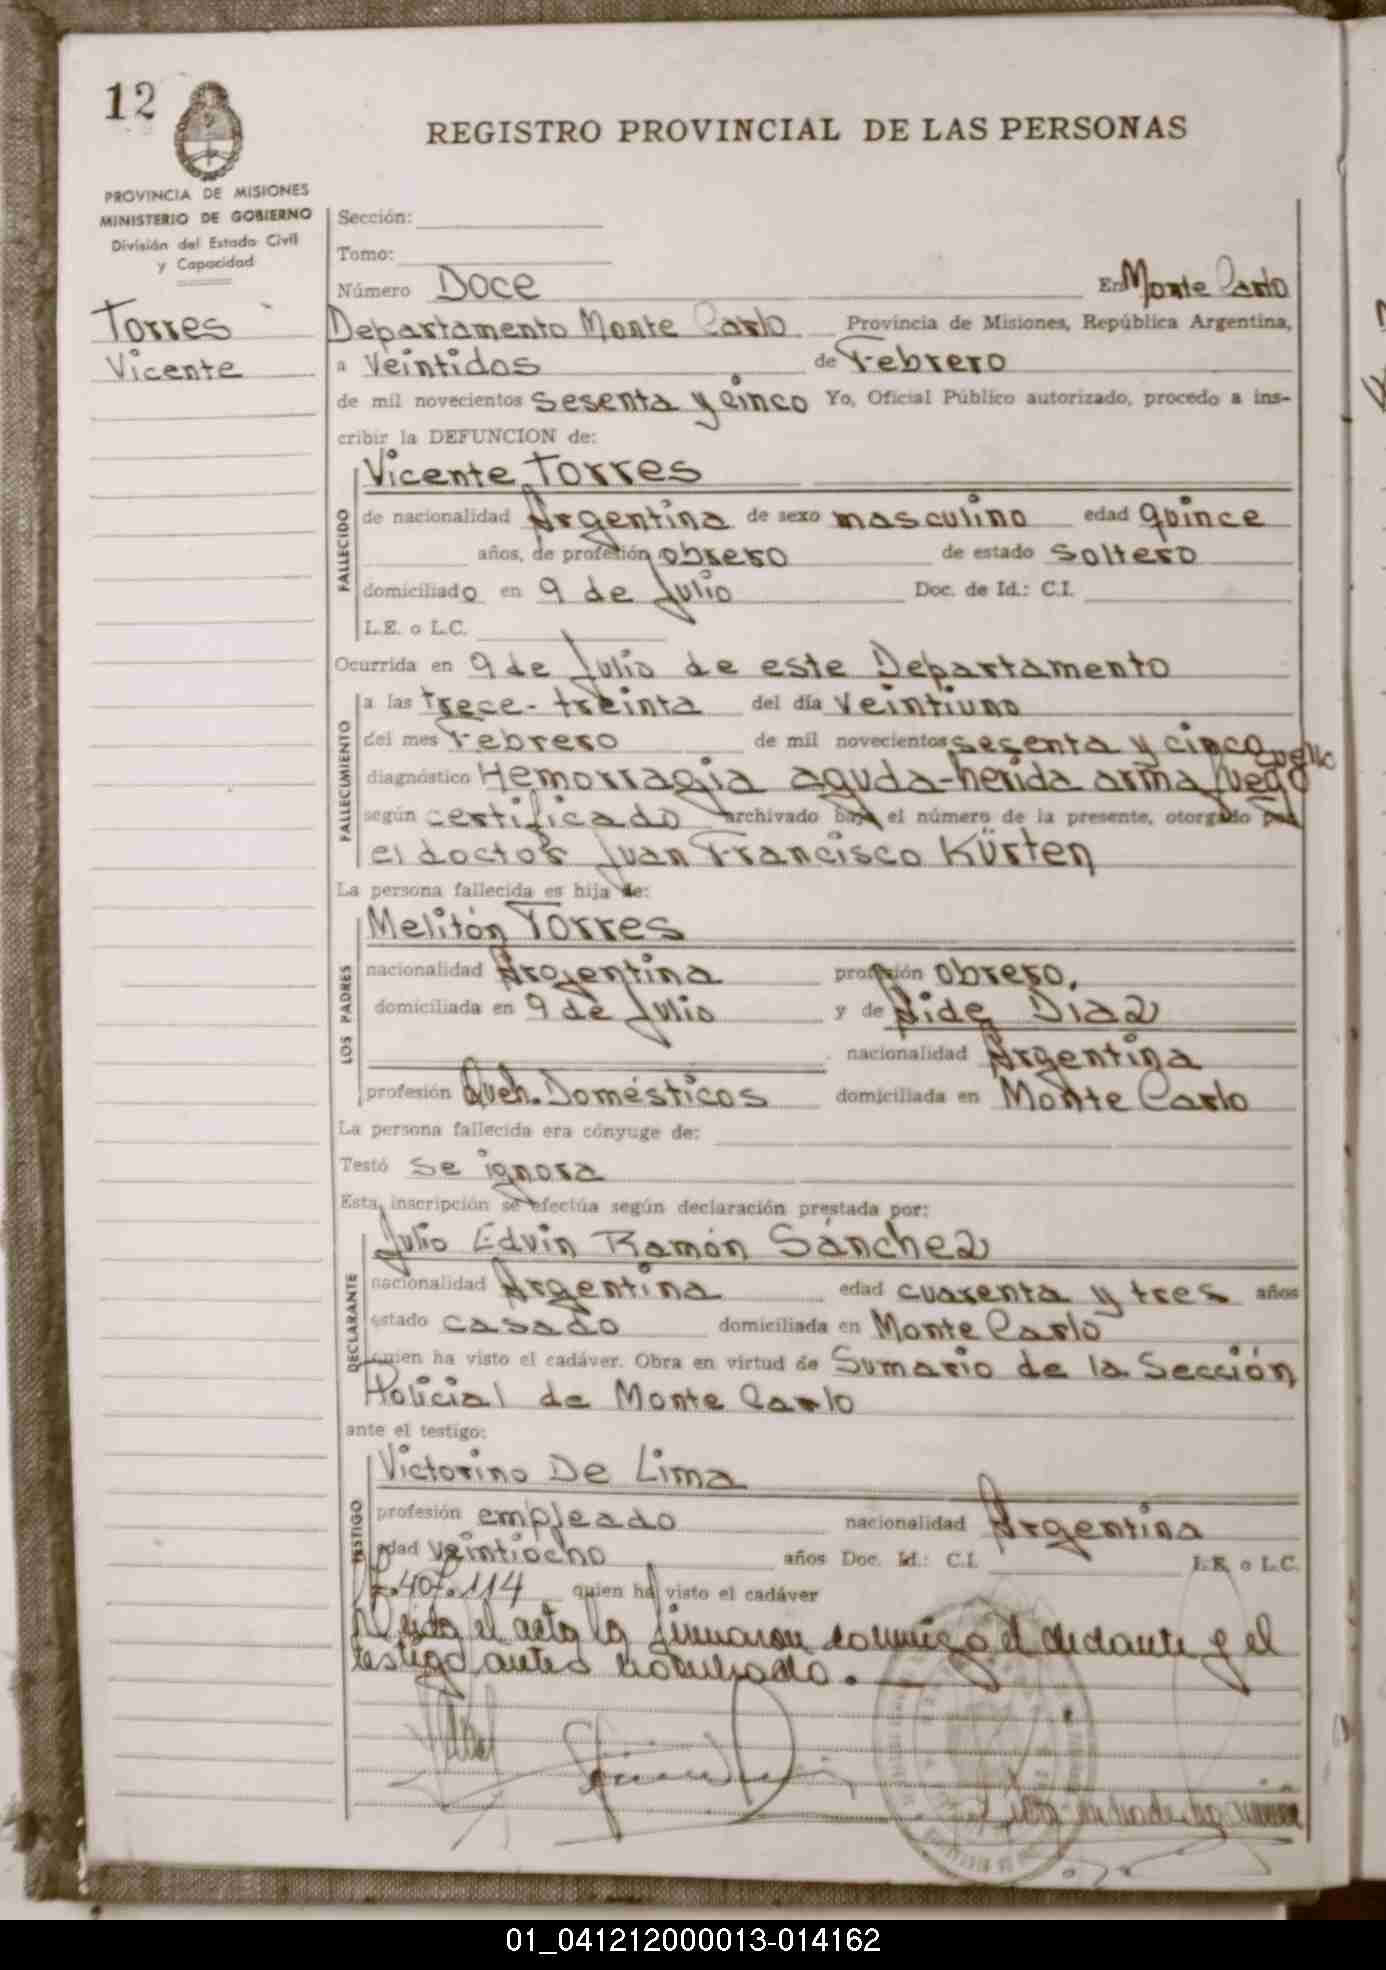 12
REGISTRO PROVINCIAL DE LAS PERSONAS
PROVINCIA DE MISIONES
MINISTERIO DE GOBIERNO
División del Estado Civil
y Capacidad
Torres
Vicente
Sección:
Tomo:
Número Doce En Monte Carlo
Departamento Monte Carlo Provincia de Misiones, República Argentina,
a Veintidos de Febrero
de mil novecientos sesenta y cinco Yo, Oficial Público autorizado, procedo a ins-
cribir la DEFUNCION de:
FALLECIDO
Vicente Torres
de nacionalidad Argentina de sexo masculino edad quince
años, de profesión obrero de estado soltero
domiciliado en 9 de Julio Doc. de Id.: C.I.
L.E. o L.C.
Ocurrida en 9 de Julio de este Departamento
FALLECIMIENTO
a las trece-treinta del día veintiuno
del mes Febrero de mil novecientos sesenta y cinco
diagnóstico Hemorragia aguda-herida arma fuego cuello
según certificado archivado bajo el número de la presente, otorgado por
el doctor Juan Francisco Kürten
La persona fallecida es hija de:
LOS PADRES
Melitón Torres
nacionalidad Argentina profesión obrero,
domiciliada en 9 de Julio y de Aide Diaz
nacionalidad Argentina
profesión Queh. Domésticos domiciliada en Monte Carlo
La persona fallecida era cónyuge de:
Testó se ignora
Esta inscripción se efectúa según declaración prestada por:
DECLARANTE
Julio Edvin Ramón Sánchez
nacionalidad Argentina edad cuarenta y tres años
estado casado domiciliada en Monte Carlo
quien ha visto el cadáver. Obra en virtud de Sumario de la Sección
Policial de Monte Carlo
ante el testigo:
TESTIGO
Victorino De Lima
profesión empleado nacionalidad Argentina
edad veintiocho años Doc. Id.: C.I. L.E. o L.C.
7.407.114 quien ha visto el cadáver
Leida el acta la firmaron conmigo el declarante y el
testigo antes nombrado.
01_041212000013-014162